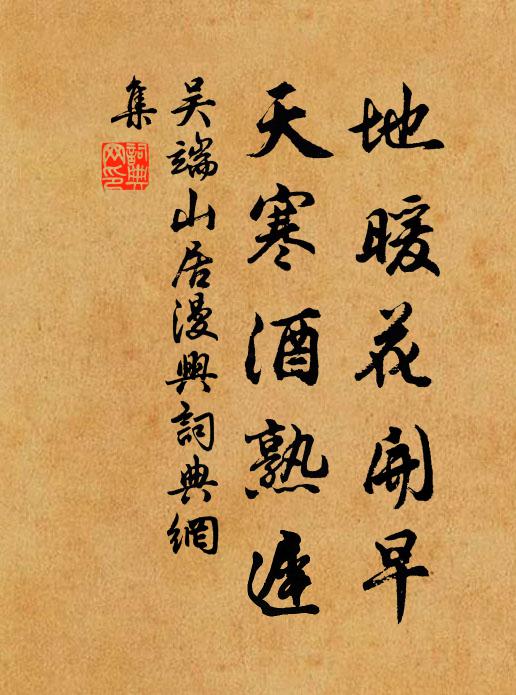 地暖花開早
天寒酒熟遲
吴端山居漫興詞典網
集
詞典網印